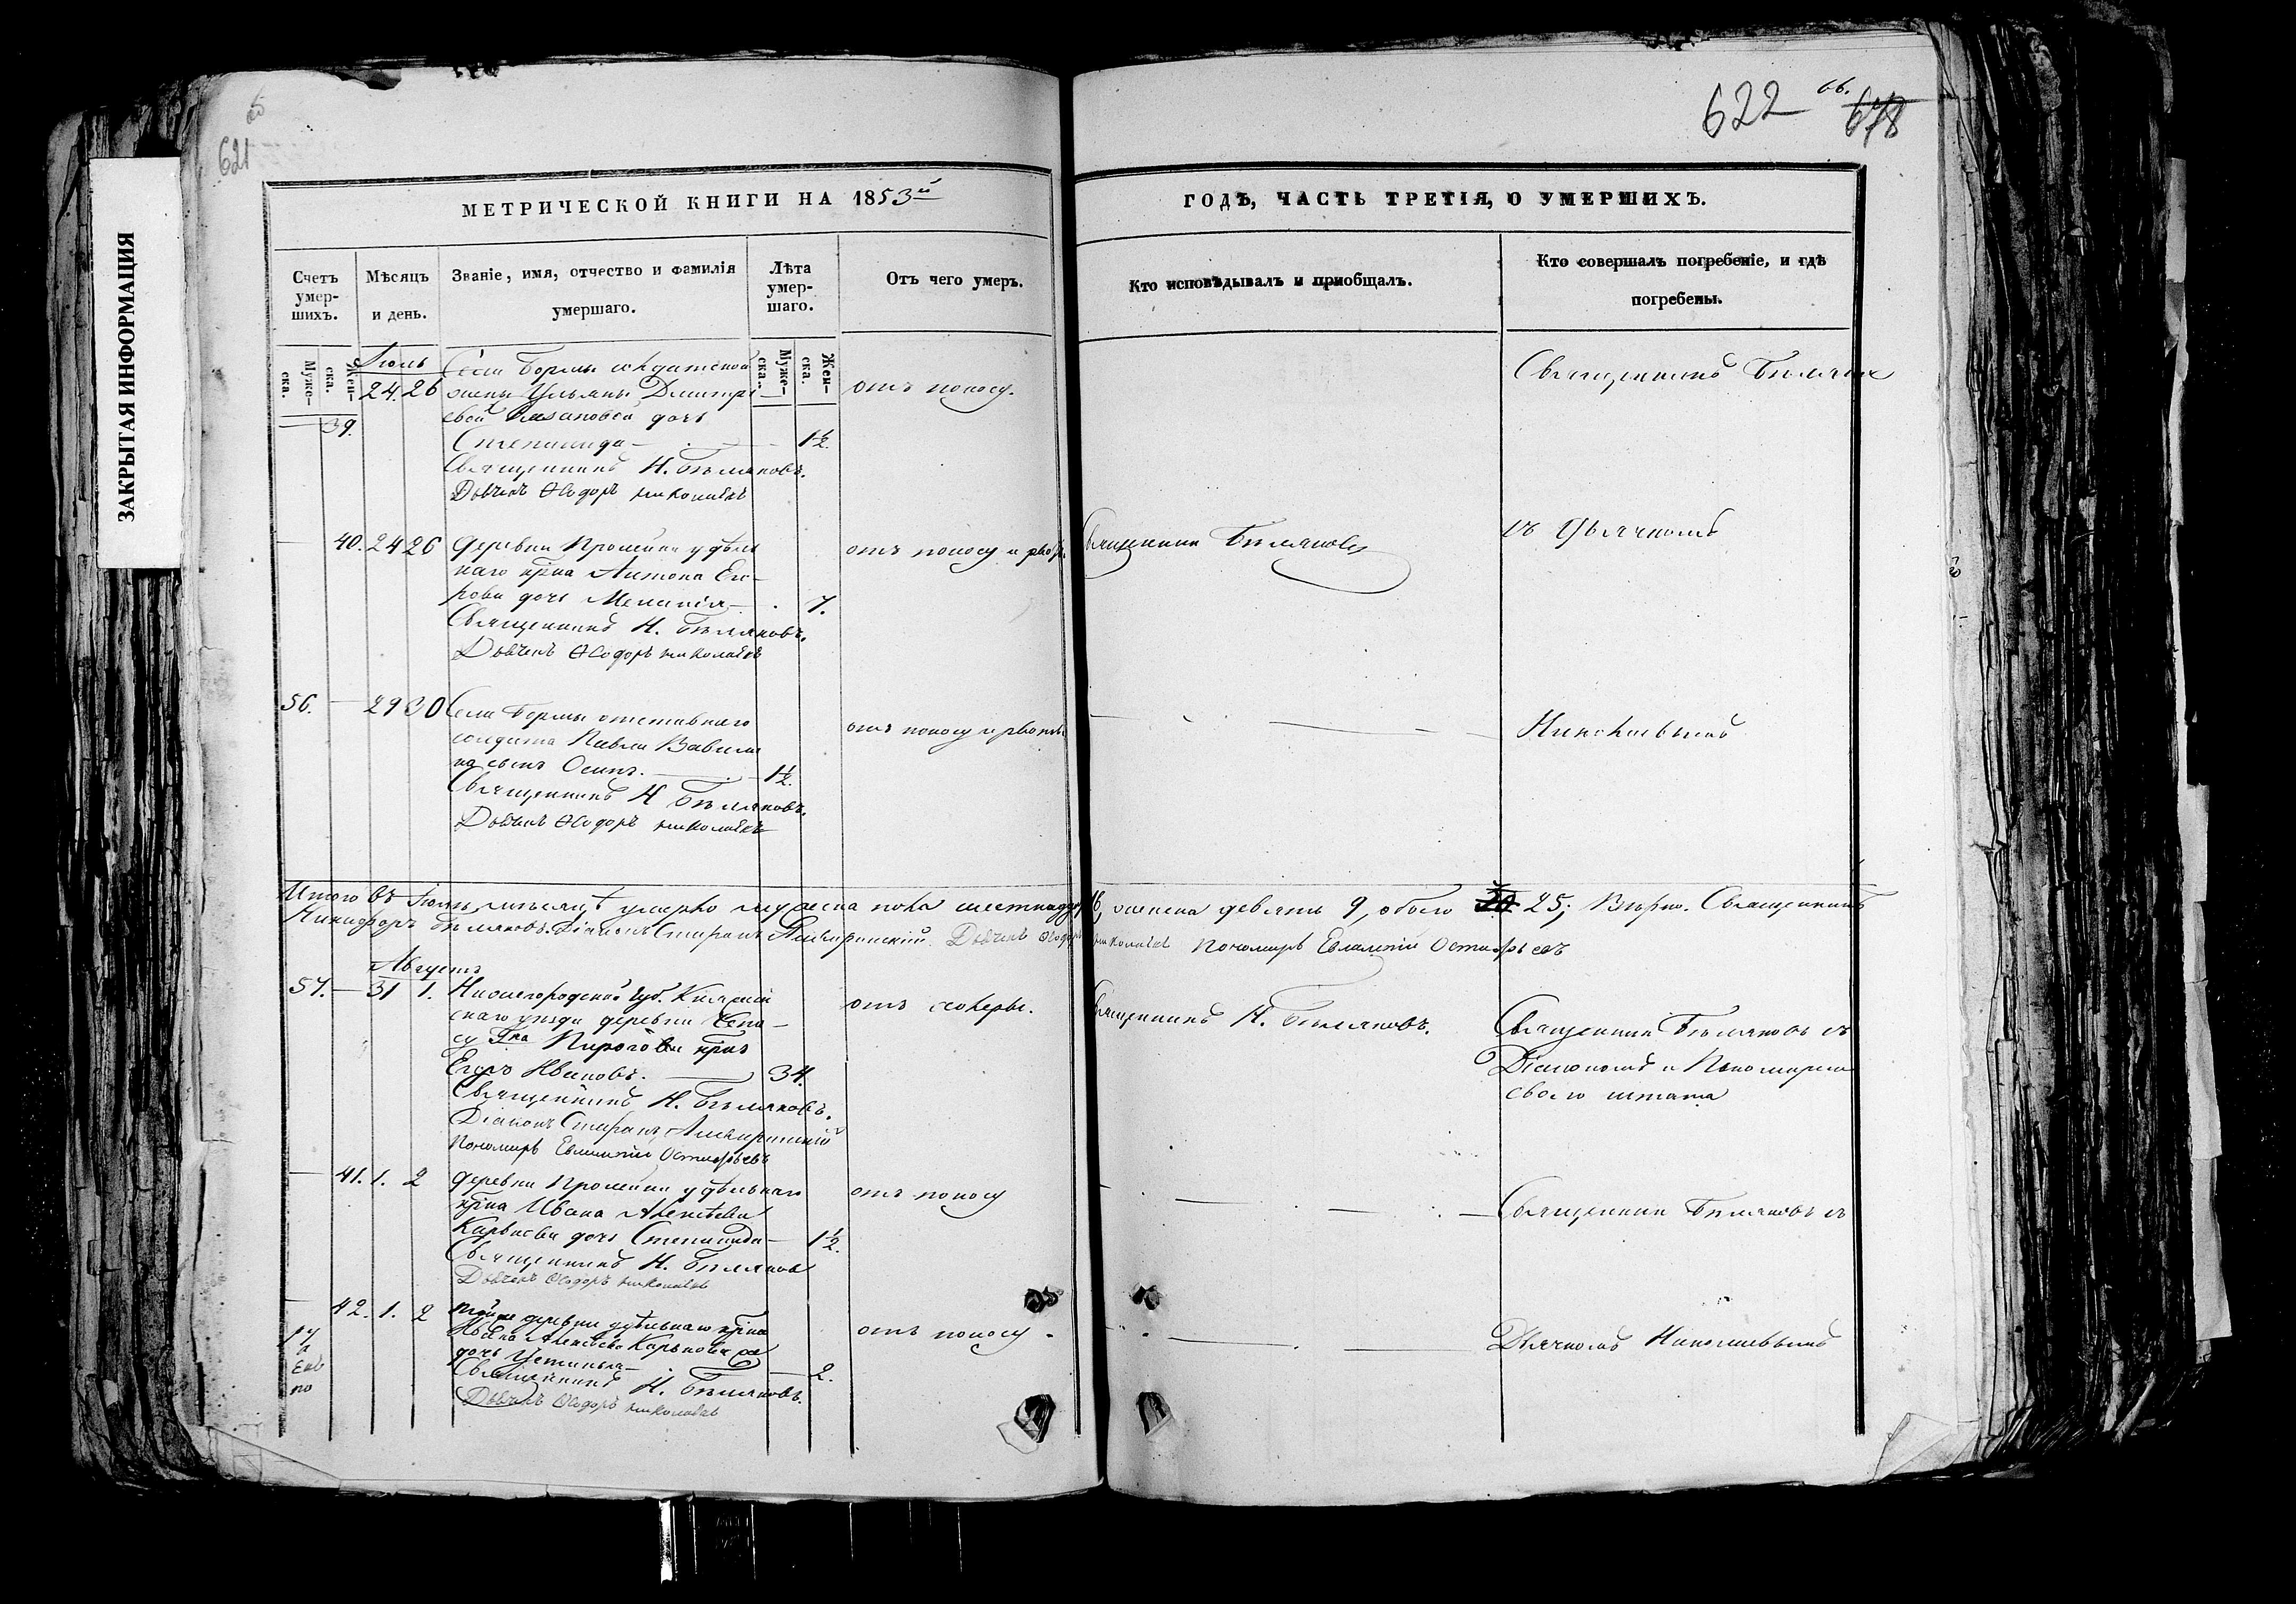 ЗАКРЫТАЯ ИНФОРМАЦИЯ
621
622 об. 678
МЕТРИЧЕСКОЙ КНИГИ НА 1853й
ГОДЪ, ЧАСТЬ ТРЕТІЯ, О УМЕРШИХЪ.
Счетъ умер-шихъ.
Мѣсяцъ и день.
Званіе, имя, отчество и фамилія
умершаго.
Лѣта умер-шаго.
Отъ чего умеръ.
Кто исповѣдывалъ и приобщалъ.
Кто совершалъ погребеніе, и гдѣ
погребены.
Муже-ска.
Жен-ска.
Муже-ска.
Жен-ска.
Іюль
39. 24. 26
Села Бормы солдатской
жены Ульяны Дмитрі-
евой дочь
Степанида 1½.
Священникъ Н. Бѣляковъ.
Дьячекъ Ѳеодоръ Николаевъ
отъ поносу.
Священникъ Бѣляков
40. 24 26
деревни Пролейки удѣль
наго кр̃на Антона Его-
рова дочь Меланія 7.
Священникъ Н. Бѣляковъ.
Дьячекъ Ѳеодоръ Николаевъ
отъ поносу и рвоты
Священникъ Бѣляковъ
съ Дьячкомъ
56. — 29 30
Села Бормы отставнаго
солдата Павла Вавили
на сынъ Осипъ. 1½.
Священникъ Н Бѣляковъ.
Дьячекъ Ѳеодоръ Николаевъ
отъ поносу и рвоты
Николаевымъ
Итого въ Іюлѣ мѣсяцѣ умерло мужеска пола шестнадцать 16, женска девять 9, обоего 25; Вѣрно. Священникъ
Никифоръ Бѣляковъ. Діаконъ Дьячекъ Ѳеодоръ Николаевъ Пономарь Евлампій
Августъ
57. — 31 1.
Нижегородской Губ. Княгин
скаго уѣзда деревни
Г̃на Пирогова кр̃нъ
Егоръ Ивановъ. 34.
Священникъ Н. Бѣляковъ.
Діаконъ
Пономарь Евлампій
отъ холеры.
Священникъ Н. Бѣляковъ.
Священникъ Бѣляковъ съ
Діакономъ и Пономаремъ
своего штата
41. 1. 2
деревни Пролейки удѣльнаго
кр̃на Ивана Алексѣева
дочь Степанида 1½.
Священникъ Н. Бѣляковъ
Дьячекъ Ѳеодоръ Николаевъ
отъ поносу
Священникъ Бѣляковъ съ
42. 1. 2
той же деревни удѣльнаго кр̃на
Ивана Алексѣева
дочь Устинья 2.
Священникъ Н. Бѣляковъ.
Дьячекъ Ѳеодоръ Николаевъ
отъ поносу.
Дьячкомъ Николаевымъ